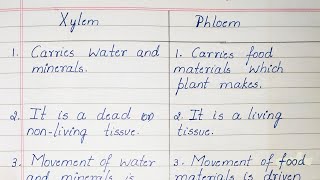 Xylem
Phloem
1. Carries water and
minerals.
1. Carries food
materials which
plant makes.
2. It is a dead or
non-living tissue.
2. It is a living
tissue.
3. Movement of water
and minerals is
3. Movement of food
materials is driven